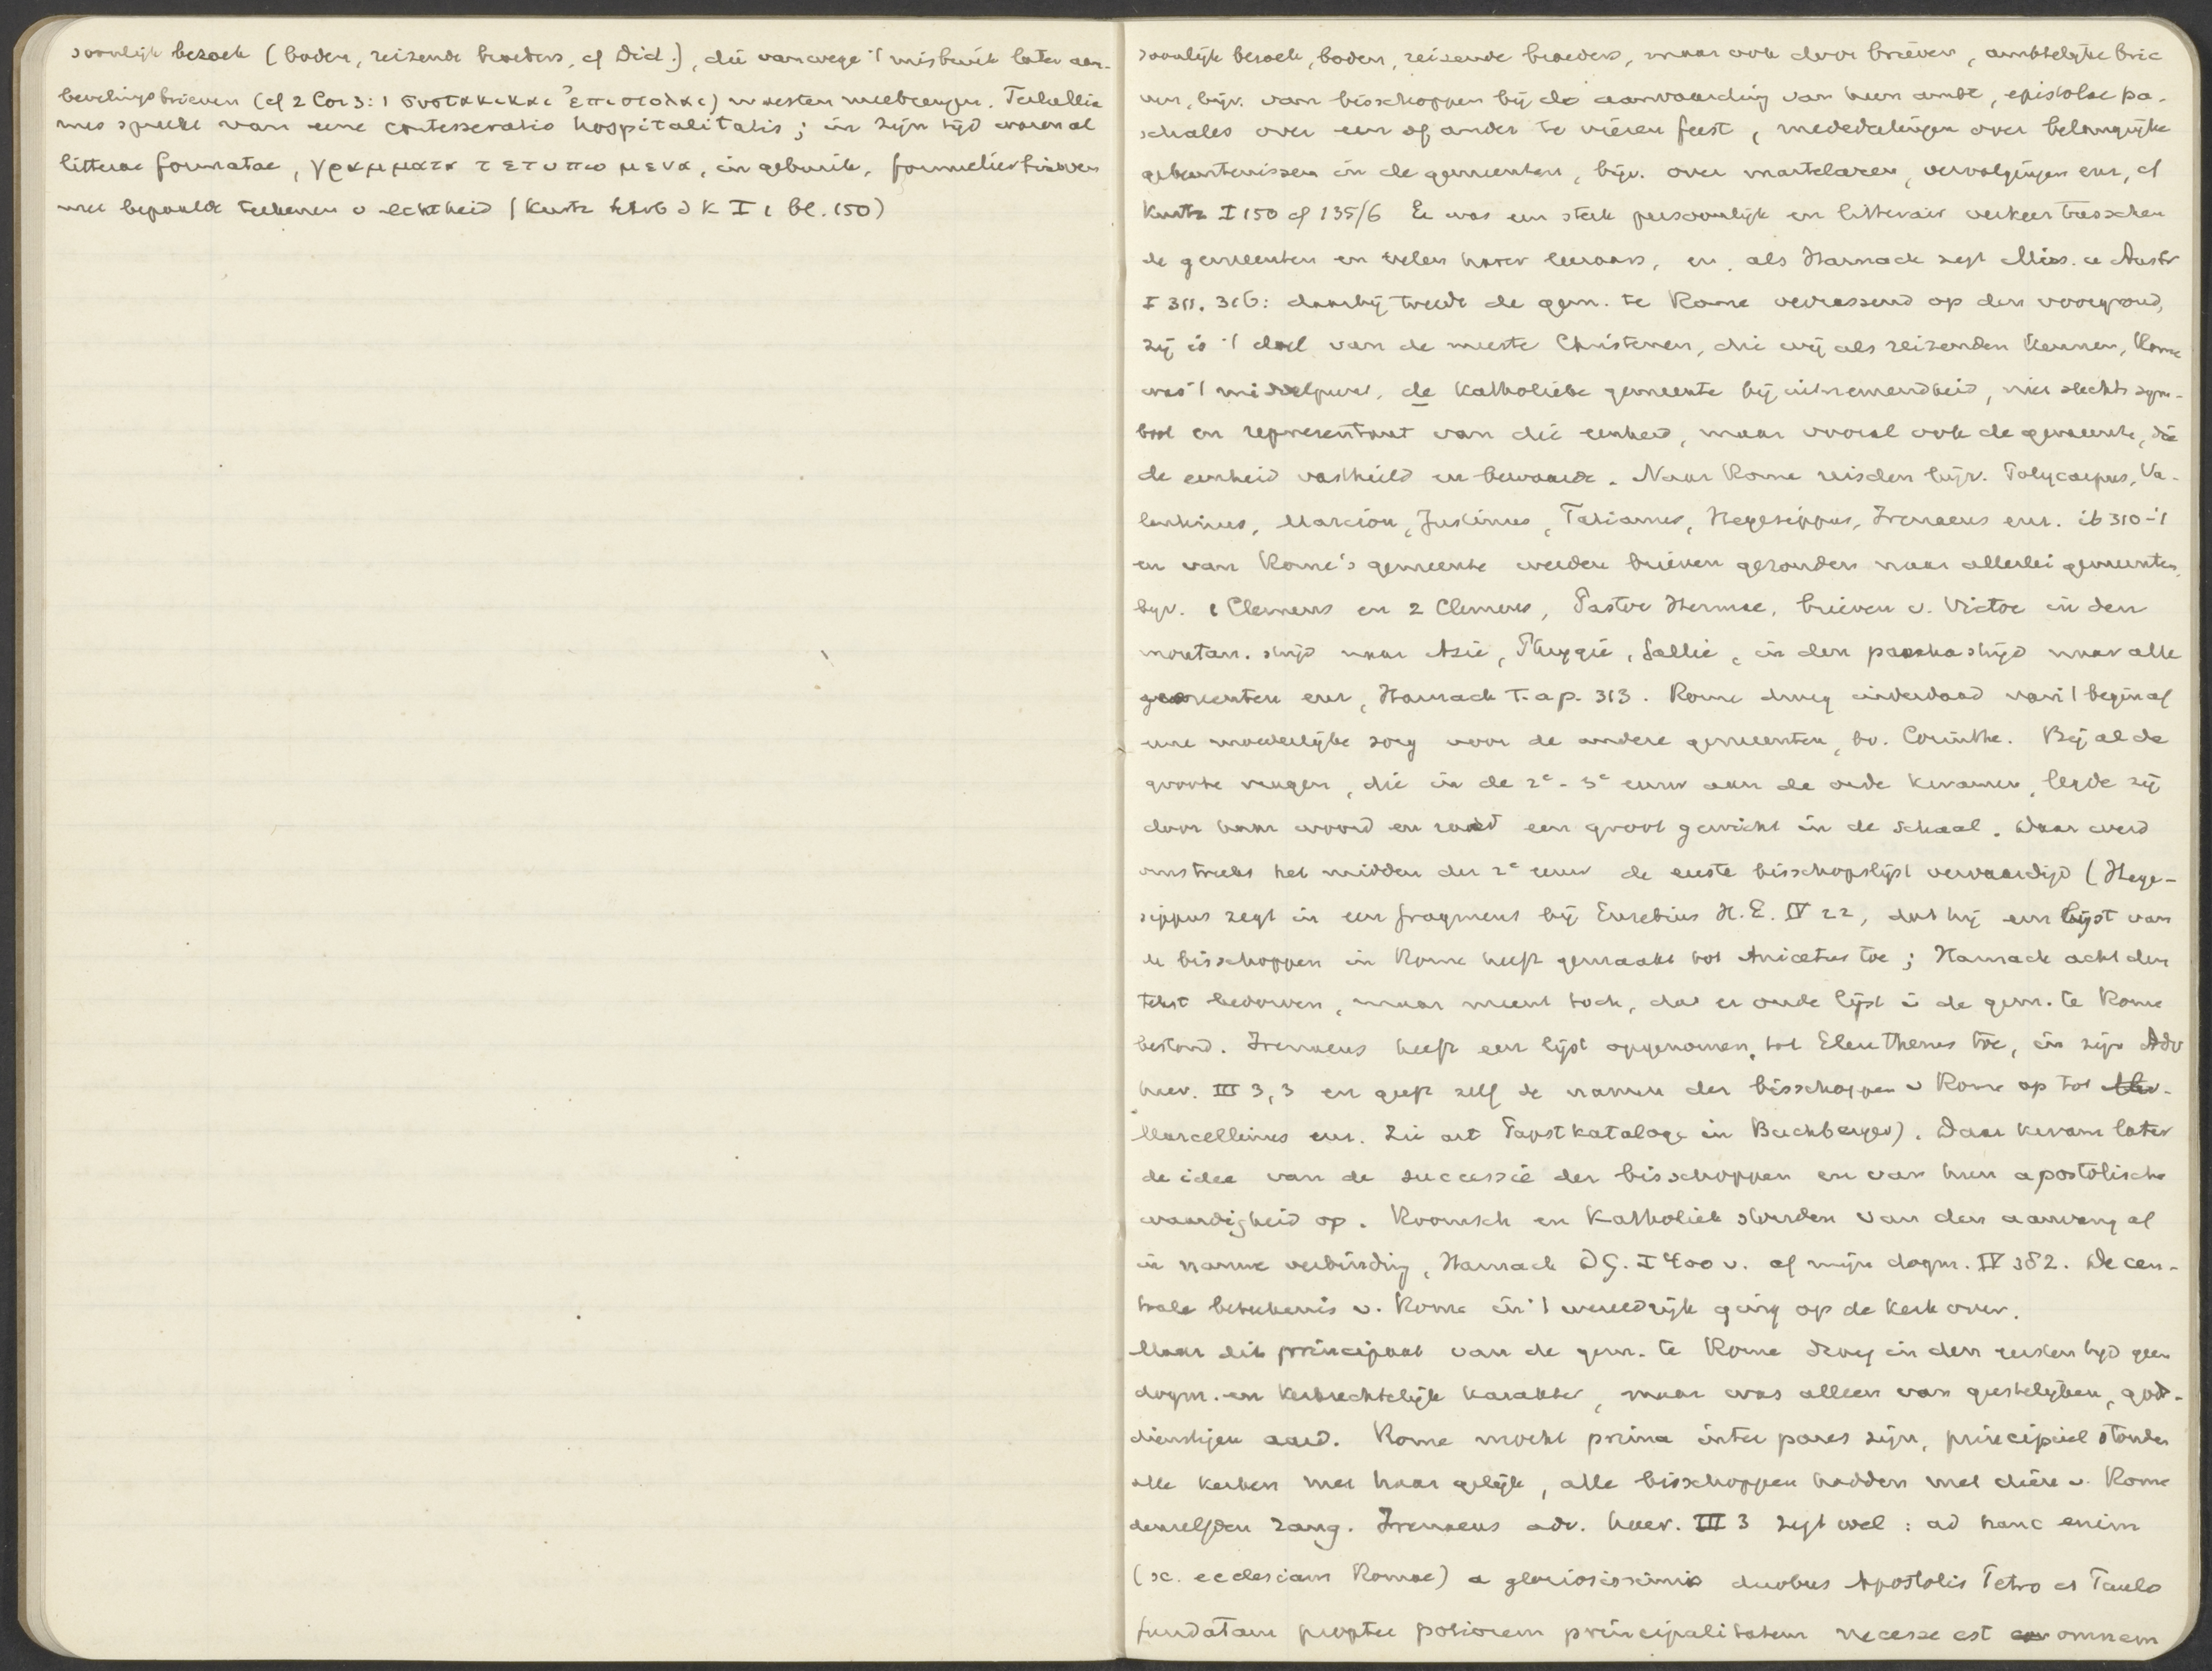 soonlijk bezoek (boden, reizende broeders, cf Did.), die vanwege 't misbruik later aan-
bevelingsbrieven (cf 2 Cor 3:1 συστακικαι ἐπιστολαι) moesten meebrengen. Tertullia
nus spreekt van eene contesseratio hospitalitatis; in zijn tijd waren al
litterae formatae, γραμματα τετυπωμενα, in gebruik, formulierbrieven
met bepaalde teekenen v echtheid (Kurtz I 1 bl. 150)
soonlijk bezoek, boden, reizende broeders, maar ook door brieven, ambtelijke brie
ven, bijv. van bisschoppen bij de aanvaarding van hun ambt, epistolae pa-
schales over een of ander te vieren feest, mededelingen over belangrijke
gebeurtenissen in de gemeenten, bijv. over martelaren, vervolgingen enz, cf
Kurtz I 150 cf 135/6 Er was een sterk persoonlijk en litterair verkeer tusschen
de gemeenten en velen harer leeraars, en, als Harnack zegt Miss. u Ausbr
I 311. 316: daarbij treedt de gem. te Rome verrassend op den voorgrond,
zij is 't doel van de meeste Christenen, die wij als reizenden kennen, Rome
was 't middelpunt, de Katholieke gemeente bij uitnemendheid, niet slechts sym-
bool en representant van die eenheid, maar vooral ook de gemeente, die
de eenheid vasthield en bewaarde. Naar Rome reisden bijv. Polycarpus, Va-
lentinus, Marcion, Justinus, Tatianus, Hegesippus, Irenaeus enz. ib 310-'1
en van Rome's gemeente werden brieven gezonden naar allerlei gemeenten,
bijv. 1 Clemens en 2 Clemens, Pastor Hermae, brieven v. Victor in den
montan. strijd naar Azië, Phrygië, Gallië, in den paschastrijd naar alle
gemeenten enz, Harnack t.a.p. 313. Rome droeg inderdaad van 't begin af
eene moederlijke zorg voor de andere gemeenten, bv. Corinthe. Bij al de
groote vragen, die in de 2e-3e eeuw aan de orde kwamen, legde zij
door haar woord en raad een groot gewicht in de schaal. Daar werd
omstreeks het midden der 2e eeuw de eerste bisschopslijst vervaardigd (Hege-
sippus zegt in een fragment bij Eusebius H.E. IV 22, dat hij een lijst van
de bisschoppen in Rome heeft gemaakt tot Anicetus toe; Harnack acht den
tekst bedorven, maar meent toch, dat er oude lijst i de gem. te Rome
bestond. Irenaeus heeft een lijst opgenomen, tot Eleutherus toe, in zijn Adv
haer. III 3,3 en geeft zelf de namen der bisschoppen v Rome op tot
Marcellinus enz. Zie art Papstkataloge in Buchberger). Daar kwam later
de idee van de successie der bisschoppen en van hun apostolische
waardigheid op. Roomsch en Katholiek stonden van den aanvang af
in nauwe verbinding, Harnack DG. I 400 v. cf mijn dogm. IV 382. De cen-
trale beteekenis v. Rome in 't wereldrijk ging op de kerk over.
Maar dit principaat van de gem. te Rome droeg in den eersten tijd geen
dogm. en kerkrechtelijk karakter, maar was alleen van geestelijken, gods-
dienstigen aard. Rome mocht prima inter pares zijn, principieel stonden
alle kerken met haar gelijk, alle bisschoppen hadden met dien v. Rome
denzelfden rang. Irenaeus adv. haer. III 3 zegt wel: ad hanc enim
(sc. ecclesiam Romae) a gloriosissimis duobus Apostolis Petro et Paulo
fundatam propter potiorem principalitatem necesse est omnem